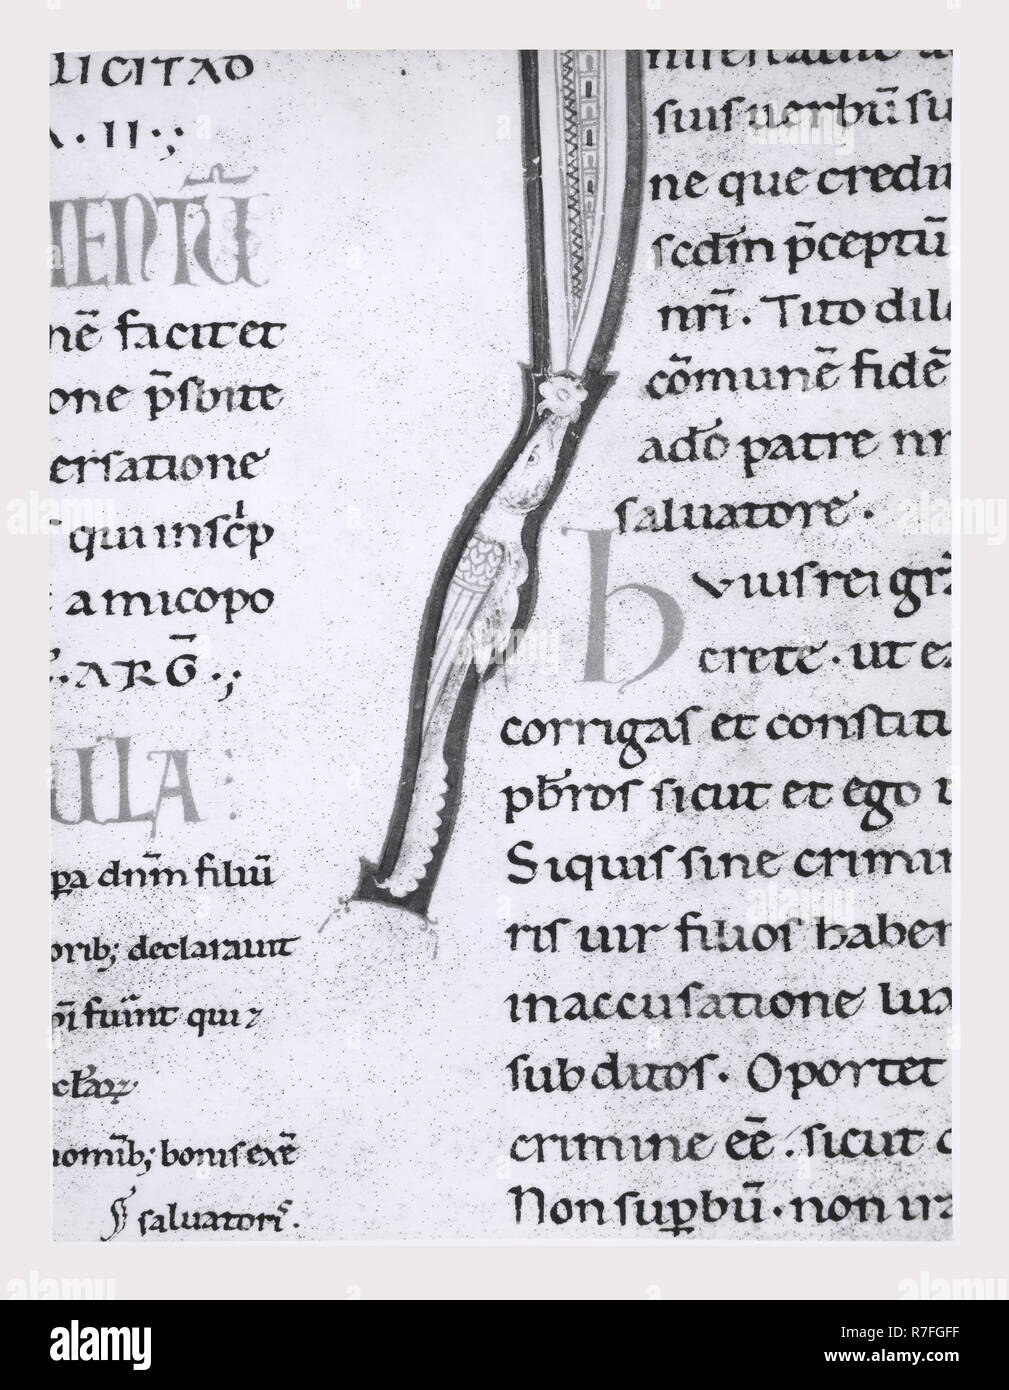 LICITAD
A · II ;;
MENTŪ
nē facit et
one p̄sbite
ersatione
qui inscrip
amicopo
· ARḠ ·;
ULA :
pa dn̄m filiū
orib; declarauit
qui
nomīb; bonis exē
salvatoris.
suis uerbū su
ne que credi
scdm̄ p̄ceptū
nr̄i · Tito dile
cōmunē fidē
a do patre nr
salvatore ·
huius rei gr̄a
crete · ut ea
corrigas et constitu
pb̄ros sicut et ego
Siquis sine crimi
ris uir filios haben
in accusatione lux
subditos · Oportet
crimine eē · sicut
Non sup̱bū · non ira
alamy
Image ID: R7FGFF
www.alamy.com